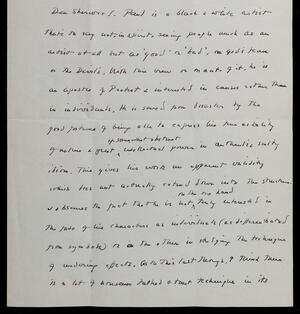 Dear Sherwood: Paul is a black & white artist
That is to say not in paints, seeing people much as an
artist at all but as 'good' or 'bad', on god's team
or the Devil's. With this view or mark of it, he is
an apostle of Protest & interested in causes rather than
in individuals. He is saved from disaster by the
good fortune of being able to express his true nobility
if somewhat abstract
of nature & great intellectual power in authentic salty
idiom. This gives his work an apparent validity
which does not actually extend down into the structure
on the one hand
& obscures the fact that he is not truly interested in
the fate of his characters as individuals (as differentiated
from symbols) or in the other in studying the technique
of rendering effects. As to this last though, I think there
is a lot of nonsense talked about technique in its